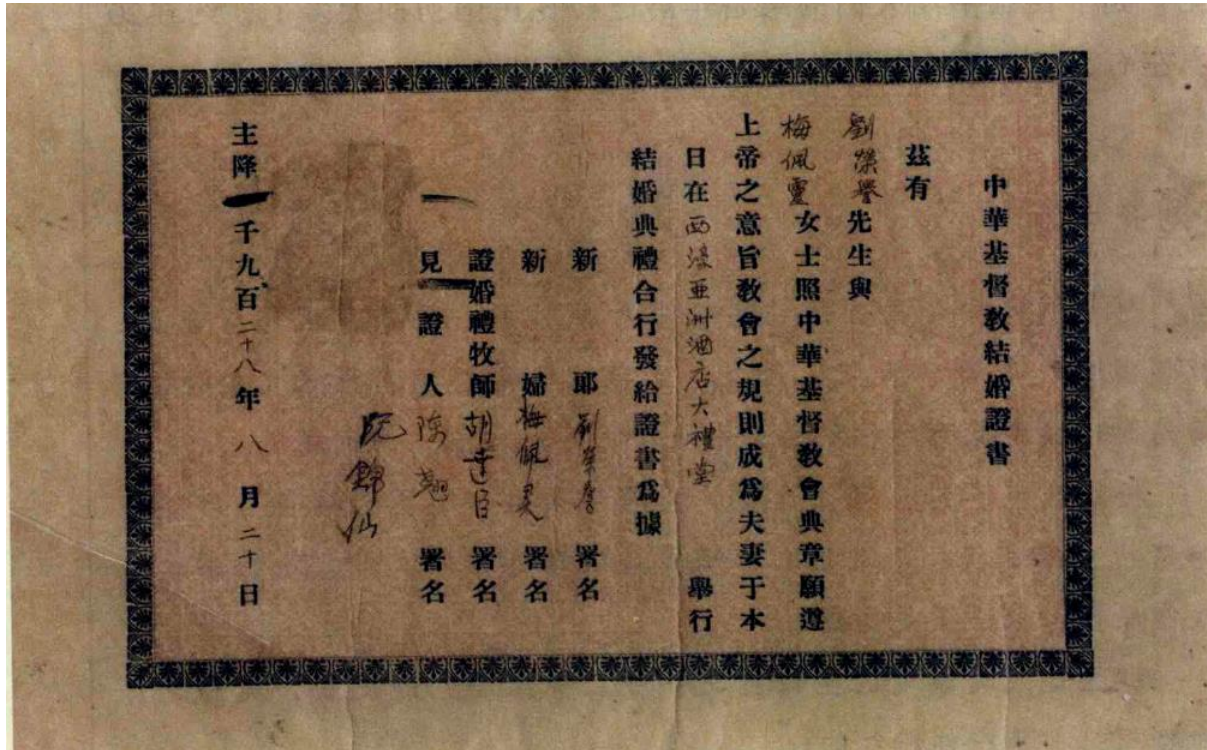 中華基督教結婚證書
茲有
劉榮譽先生與
梅佩靈女士照中華基督教會典章願遵
上帝之意旨教會之規則成為夫妻于本
日在西濠亞洲酒店大禮堂 舉行
結婚典禮合行發給證書為據
新 郎 署名
新 婦 梅佩灵 署名
證婚禮牧師 胡 署名
見證人 陳 署名
阮錦仙
主降一千九百二十八年八月二十日